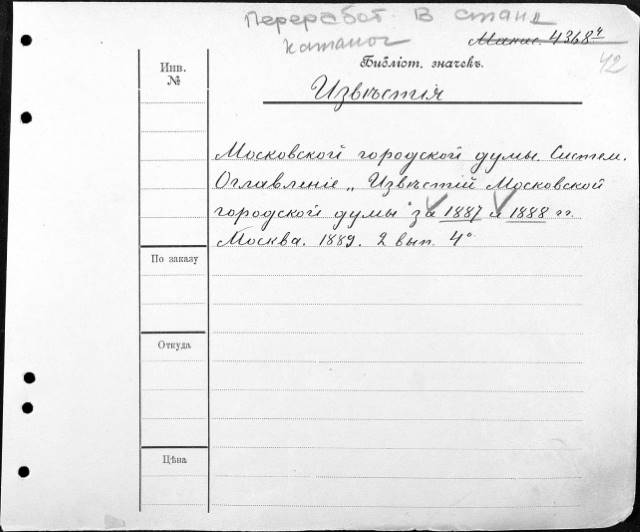 Переработ. В станд
каталог
Минис. 4368ч
42
Инв.
№
Библіот. значекъ.
Извѣстія
Московской городской думы. Систем.
Оглавленіе „Извѣстій Московской
городской думы" за 1887 и 1888 гг.
Москва. 1889. 2 вып. 4°
По заказу
Откуда
Цѣна